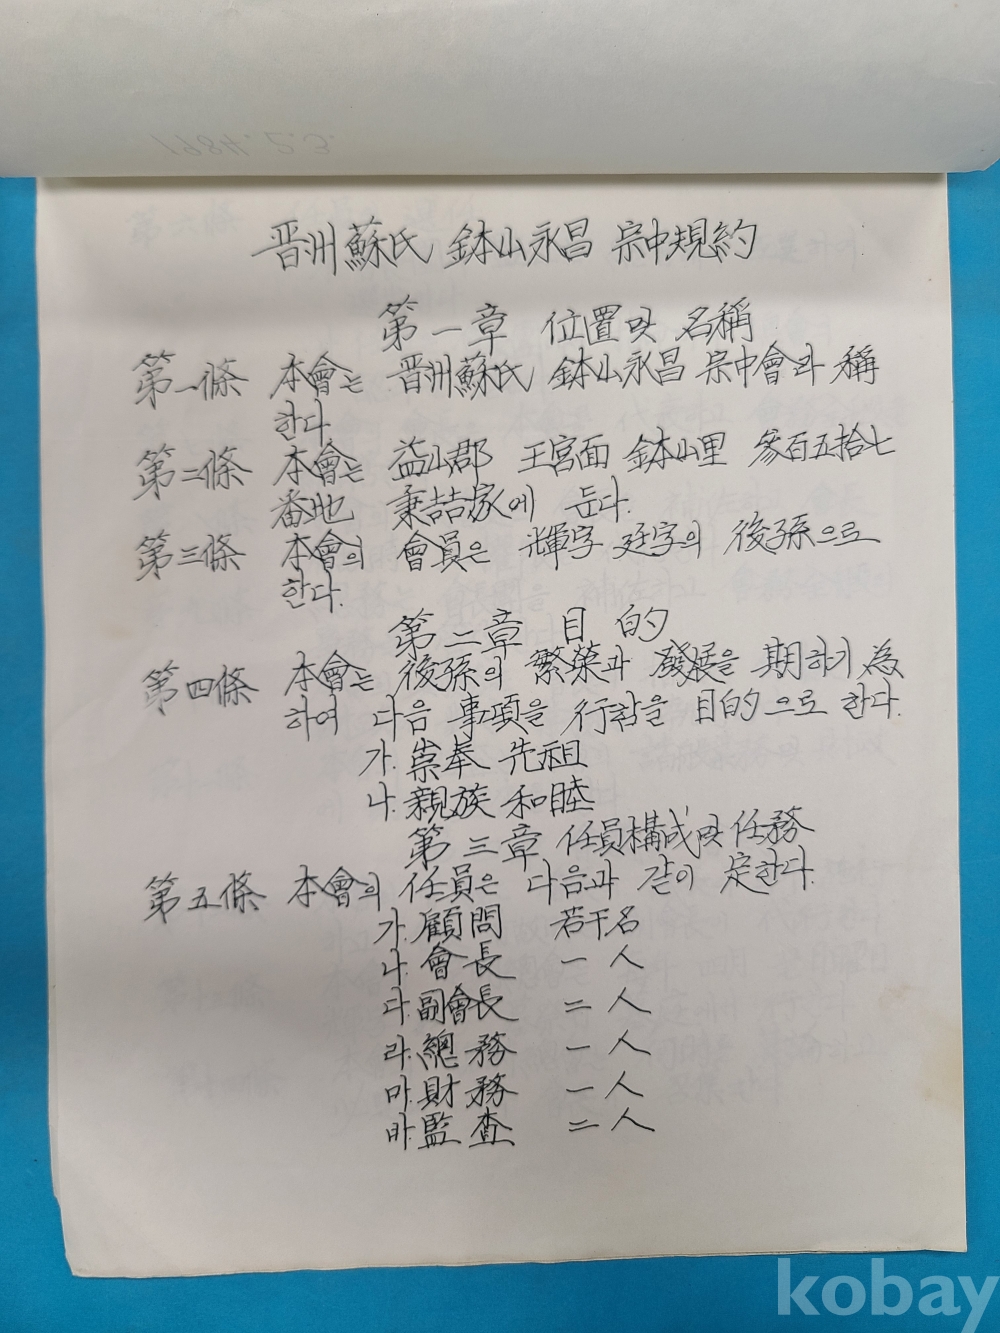 1984. 2. 3.
晋州蘇氏 鉢山永昌 宗中規約
第一章 位置및 名稱
第一條 本會는 晋州蘇氏 鉢山永昌 宗中會라 稱
한다
第二條 本會는 益山郡 王宮面 鉢山里 參百五拾七
番地 秉喆家에 둔다.
第三條 本會의 會員은 輝字 廷字의 後孫으로
한다.
第二章 目的
第四條 本會는 後孫의 繁榮과 發展을 期하기 為
하여 다음 事項을 行함을 目的으로 한다.
가. 崇奉 先祖
나. 親族 和睦
第三章 任員構成및 任務
第五條 本會의 任員은 다음과 같이 定한다.
가. 顧問 若干名
나. 會長 一人
다. 副會長 二人
라. 總務 一人
마. 財務 一人
바. 監査 二人
kobay